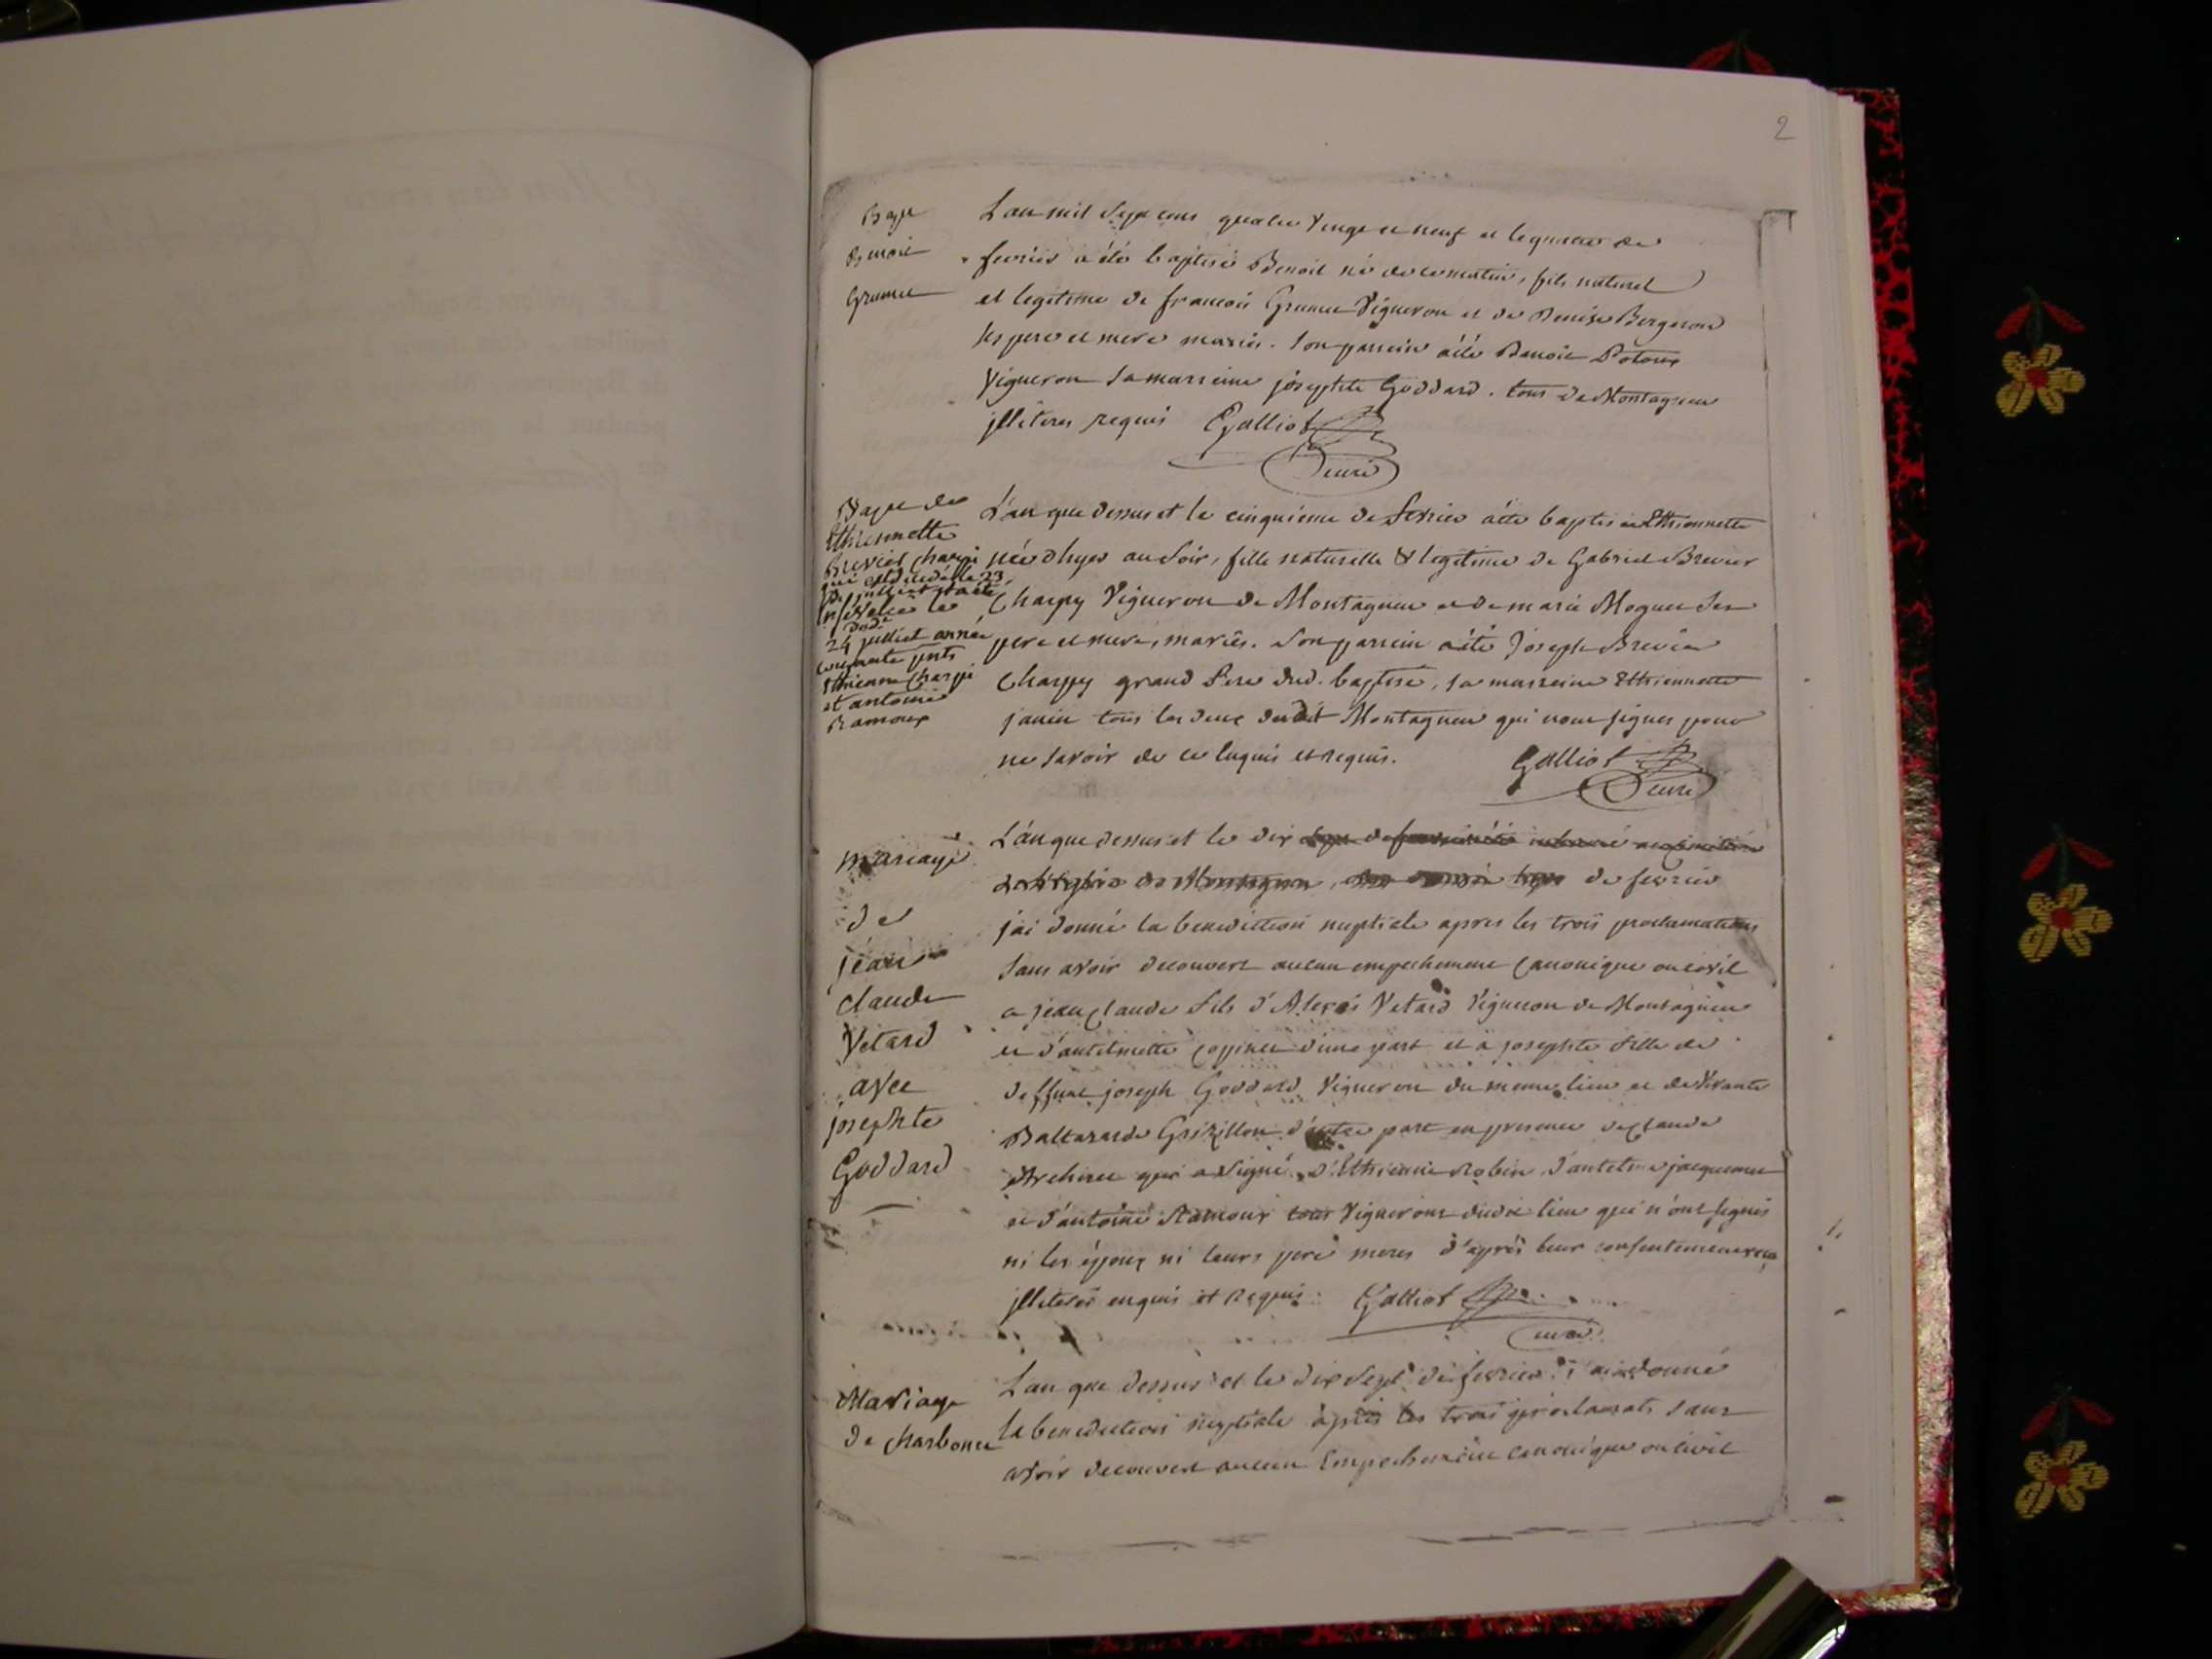 2
Bapt
Benoit
Grumet
L'an mil sept cens quatre vingt et neuf et le quatre de
fevrier a été baptisé Benoit né de ce matin, fils naturel
et legitime de francois Grumet Vigneron et de Denise Bergeron
ses pere et mere mariés. son parrein a été Benoit
Vigneron sa marreine josephte Goddard. tous de Montagneu
jlliteres requis Galliot
curé
Bapt de
Ethiennette
Brevier charpi
qui est decedée le 23
de juillet et a été
le
dude
24 juillet année
courante pnts
Ethienne charpi
et antoine
Ramoux
L'an que dessus et le cinquieme de fevrier a été baptisée Ethiennette
née d'hyer au soir, fille naturelle & legitime de Gabriel Brevier
Charpy Vigneron de Montagneu et de marie Moguet ses
pere et mere, mariés. son parrein a été Joseph Brevier
Charpy grand Pere dud. baptisé, sa marreine Ethiennette
janin tous les deux dudit Montagneu qui n'ont signés pour
ne savoir de ce enquis et requis. Galliot
curé
mariage
de
jean
claude
Vetard
avec
josephte
Goddard
L'an que dessus et le dix
de Montagneu, de fevrier
j'ai donné la benediction nuptiale apres les trois proclamations
sans avoir decouvert aucun empechement canonique ou civil
a jean claude fils d'Alexis Vetard Vigneron de Montagneu
et d'antelmette d'une part et a josephte fille de
deffunt joseph Goddard Vigneron du meme lieu et de vivante
Baltazarde Grizillon d'autre part en presence de claude
qui a signé, d'Ethienne Robin, d'antelme jacquemet
et d'antoine Ramoux tous Vignerons dudit lieu qui n'ont signés
ni les époux ni leurs pere meres d'après leur consentement reçu
jlliteres enquis et requis. Galliot
curé
Mariage
de charbonet
L'an que dessus et le dix sept de fevrier j'ai donné
la benediction nuptiale après les trois proclamats sans
avoir decouvert aucun Empechement canonique ou civil